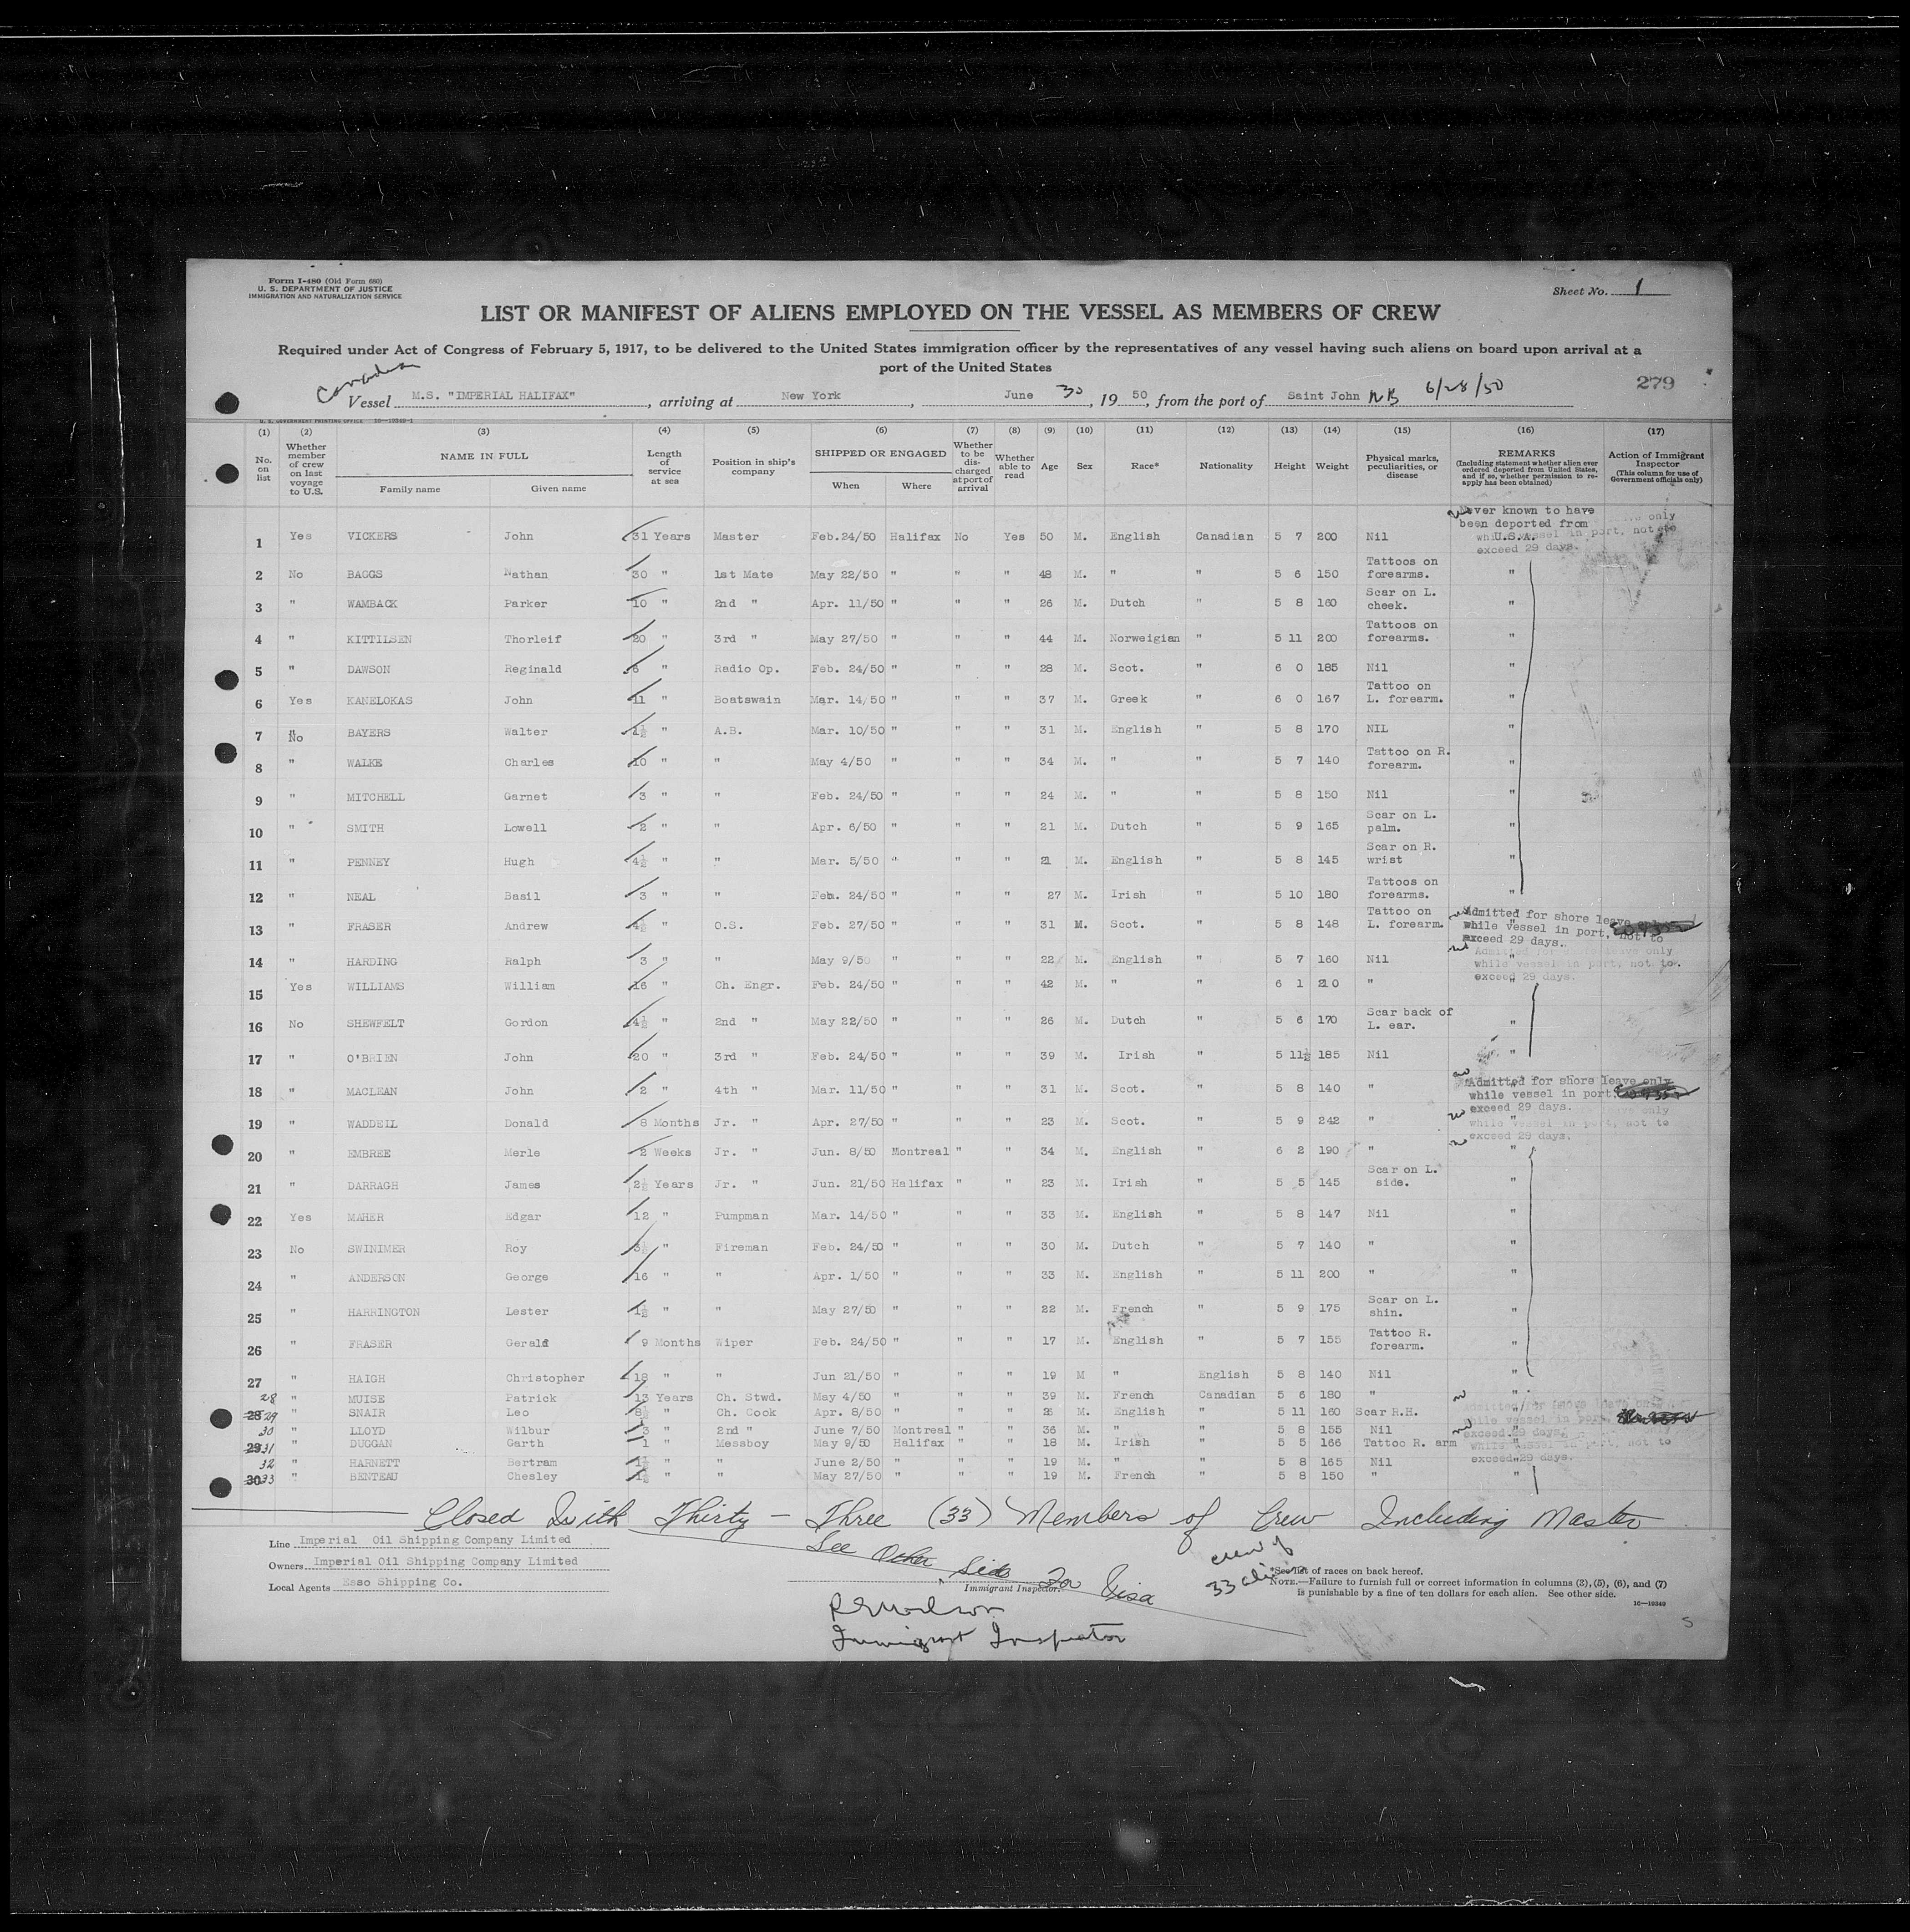 Form I-480 (Old Form 680)
U. S. DEPARTMENT OF JUSTICE
IMMIGRATION AND NATURALIZATION SERVICE
Sheet No. 1
LIST OR MANIFEST OF ALIENS EMPLOYED ON THE VESSEL AS MEMBERS OF CREW
Required under Act of Congress of February 5, 1917, to be delivered to the United States immigration officer by the representatives of any vessel having such aliens on board upon arrival at a
port of the United States
279
Canadian
Vessel M.S. "IMPERIAL HALIFAX", arriving at New York, June 30, 1950, from the port of Saint John NB 6/28/50
U. S. GOVERNMENT PRINTING OFFICE 16—19349-1
(1) (2) (3) (4) (5) (6) (7) (8) (9) (10) (11) (12) (13) (14) (15) (16) (17)
No. on list
Whether member of crew on last voyage to U.S.
NAME IN FULL
Family name Given name
Length of service at sea
Position in ship's company
SHIPPED OR ENGAGED
When Where
Whether to be discharged at port of arrival
Whether able to read
Age
Sex
Race*
Nationality
Height
Weight
Physical marks, peculiarities, or disease
REMARKS
(Including statement whether alien ever ordered deported from United States, and if so, whether permission to reapply has been obtained)
Action of Immigrant Inspector
(This column for use of Government officials only)
1 Yes VICKERS John 31 Years Master Feb.24/50 Halifax No Yes 50 M. English Canadian 5 7 200 Nil Never known to have been deported from U.S.A.
2 No BAGGS Nathan 30 " 1st Mate May 22/50 " " " 48 M. " " 5 6 150 Tattoos on forearms. "
3 " WAMBACK Parker 10 " 2nd " Apr. 11/50 " " " 26 M. Dutch " 5 8 160 Scar on L. cheek. "
4 " KITTILSEN Thorleif 20 " 3rd " May 27/50 " " " 44 M. Norweigian " 5 11 200 Tattoos on forearms. "
5 " DAWSON Reginald 6 " Radio Op. Feb. 24/50 " " " 28 M. Scot. " 6 0 185 Nil "
6 Yes KANELOKAS John 11 " Boatswain Mar. 14/50 " " " 37 M. Greek " 6 0 167 Tattoo on L. forearm. "
7 No BAYERS Walter 1½ " A.B. Mar. 10/50 " " " 31 M. English " 5 8 170 NIL "
8 " WALKE Charles 10 " " May 4/50 " " " 34 M. " " 5 7 140 Tattoo on R. forearm. "
9 " MITCHELL Garnet 3 " " Feb. 24/50 " " " 24 M. " " 5 8 150 Nil "
10 " SMITH Lowell 2 " " Apr. 6/50 " " " 21 M. Dutch " 5 9 165 Scar on L. palm. "
11 " PENNEY Hugh 4½ " " Mar. 5/50 " " " 21 M. English " 5 8 145 Scar on R. wrist "
12 " NEAL Basil 3 " " Feb. 24/50 " " " 27 M. Irish " 5 10 180 Tattoos on forearms. "
13 " FRASER Andrew 4½ " O.S. Feb. 27/50 " " " 31 M. Scot. " 5 8 148 Tattoo on L. forearm. " Admitted for shore leave only while vessel in port, not to exceed 29 days.
14 " HARDING Ralph 3 " " May 9/50 " " " 22 M. English " 5 7 160 Nil "
15 Yes WILLIAMS William 16 " Ch. Engr. Feb. 24/50 " " " 42 M. " " 6 1 210 " "
16 No SHEWFELT Gordon 4½ " 2nd " May 22/50 " " " 26 M. Dutch " 5 6 170 Scar back of L. ear. "
17 " O'BRIEN John 20 " 3rd " Feb. 24/50 " " " 39 M. Irish " 5 11½ 185 Nil "
18 " MACLEAN John 2 " 4th " Mar. 11/50 " " " 31 M. Scot. " 5 8 140 " " Admitted for shore leave only while vessel in port, exceed 29 days.
19 " WADDELL Donald 8 Months Jr. " Apr. 27/50 " " " 23 M. Scot. " 5 9 242 "
20 " EMBREE Merle 2 Weeks Jr. " Jun. 8/50 Montreal " " 34 M. English " 6 2 190 " "
21 " DARRAGH James 2½ Years Jr. " Jun. 21/50 Halifax " " 23 M. Irish " 5 5 145 Scar on L. side. "
22 Yes MAHER Edgar 12 " Pumpman Mar. 14/50 " " " 33 M. English " 5 8 147 Nil "
23 No SWINIMER Roy 3½ " Fireman Feb. 24/50 " " " 30 M. Dutch " 5 7 140 " "
24 " ANDERSON George 16 " " Apr. 1/50 " " " 33 M. English " 5 11 200 " "
25 " HARRINGTON Lester 1½ " " May 27/50 " " " 22 M. French " 5 9 175 Scar on L. shin. "
26 " FRASER Gerald 9 Months Wiper Feb. 24/50 " " " 17 M. English " 5 7 155 Tattoo R. forearm. "
27 " HAIGH Christopher 18 " " Jun 21/50 " " " 19 M " English 5 8 140 Nil "
28 " MUISE Patrick 13 Years Ch. Stwd. May 4/50 " " " 39 M. French Canadian 5 6 180 " "
29 " SNAIR Leo 8½ " Ch. Cook Apr. 8/50 " " " 26 M. English " 5 11 160 Scar R.H.
30 " LLOYD Wilbur 3 " 2nd " June 7/50 Montreal " " 36 M. " " 5 8 155 Nil "
31 " DUGGAN Garth 1 " Messboy May 9/50 Halifax " " 18 M. Irish " 5 5 166 Tattoo R. arm
32 " HARNETT Bertram 1½ " " June 2/50 " " " 19 M. " " 5 8 165 Nil "
33 " BENTEAU Chesley 1½ " " May 27/50 " " " 19 M. French " 5 8 150 " "
Closed With Thirty - Three (33) Members of Crew Including Master
See Other Side For Visa
Line Imperial Oil Shipping Company Limited
Owners Imperial Oil Shipping Company Limited
Local Agents Esso Shipping Co.
Immigrant Inspector.
Immigrant Inspector
crew of
33 aliens
*See list of races on back hereof.
NOTE.—Failure to furnish full or correct information in columns (2), (5), (6), and (7)
is punishable by a fine of ten dollars for each alien. See other side.
16—19349